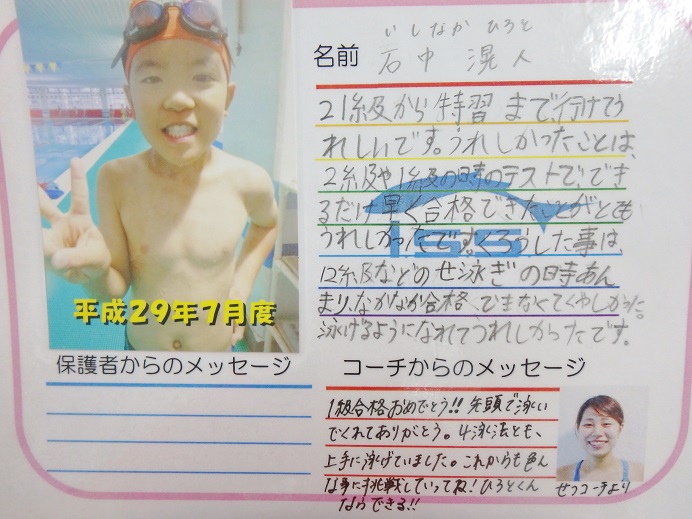 いしなか ひろと
名前 石中 滉人
21級から特習まで、行けてう
れしいです。うれしかったことは、
2級や1級の時のテストで、でき
るだけ早く合格できたことがとても
うれしかったです。くろうした事は、
12級などのせ泳ぎの時あん
まり、なかなか合格できなくてくやしかった。
泳げるようになれてうれしかったです。
平成29年7月度
保護者からのメッセージ
コーチからのメッセージ
1級合格おめでとう!! 先頭で泳い
でくれてありがとう。4泳法とも、
上手に泳げていました。これからも色ん
な事に挑戦していってね!ひろとくん
ならできる!!
コーチより